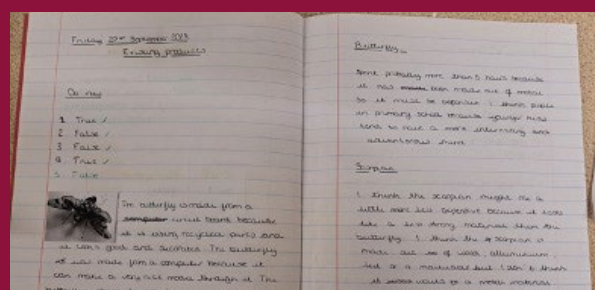 Friday 22nd September 2023
Existing products
Do now
1 True ✓
2 False ✓
3 False ✓
4 True ✓
5 False
The butterfly is made from a
circuit board because
it is using recycled parts and
it looks good and decorative. The butterfly
was made from a computer because it
can make a very nice through it. The
Butterfly
Spent probably more than 5 hours because
it has been made out of metal
so it must be expensive. I think pupils
in primary school because younger kids
tend to have a more interesting and
mind
Scorpion
I think the scorpion might be a
little more less expensive because it looks
like a less strong material than the
butterfly. I think the scorpion is
made out of wood, alluminium,
but I don't think
it would be a metal material